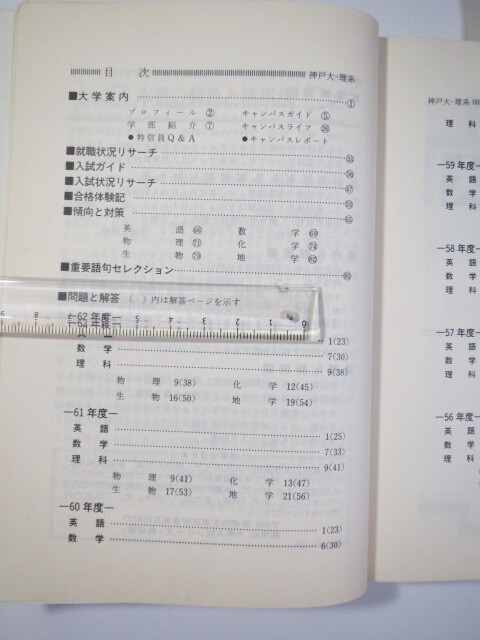 目 次
神戸大-理系
■大学案内 ①
プロフィール ② キャンパスガイド ⑤
学部紹介 ⑦ キャンパスライフ
●特信員Q&A ●キャンパスレポート
■就職状況リサーチ
■入試ガイド
■入試状況リサーチ ㊼
■合格体験記
■傾向と対策
英 語 数 学
物 理 化 学
生 物 地 学
■重要語句セレクション
■問題と解答 ( )内は解答ページを示す
—62年度—
9 8 7 6 5 4 3 2 1 0
1(23)
数 学 7(30)
理 科 9(38)
物 理 9(38) 化 学 12(45)
生 物 16(50) 地 学 19(54)
—61年度—
英 語 1(25)
数 学 7(33)
理 科 9(41)
物 理 9(41) 化 学 13(47)
生 物 17(53) 地 学 21(56)
—60年度—
英 語 1(23)
数 学 6(30)
神戸大-理系
理 科
—59年度—
英 語
数 学
理 科
—58年度—
英 語
数 学
理 科
—57年度—
英 語
数 学
理 科
—56年度—
英 語
数 学
理 科